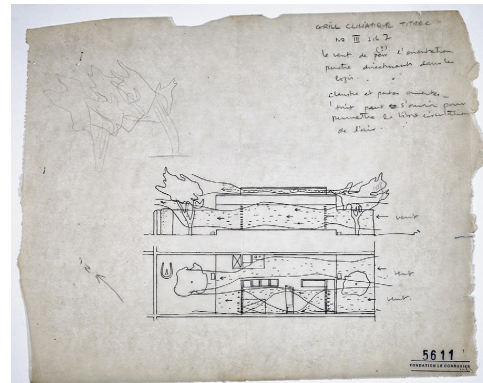 GRILL CLIMATIQUE TITRE C
No III
le vent de l'orientation
pénètre directement dans le
logis.
claustra et portes ouvertes
toit peut s'ouvrir pour
permettre la libre circulation
de l'air.
vent
vent
vent
5611
FONDATION LE CORBUSIER